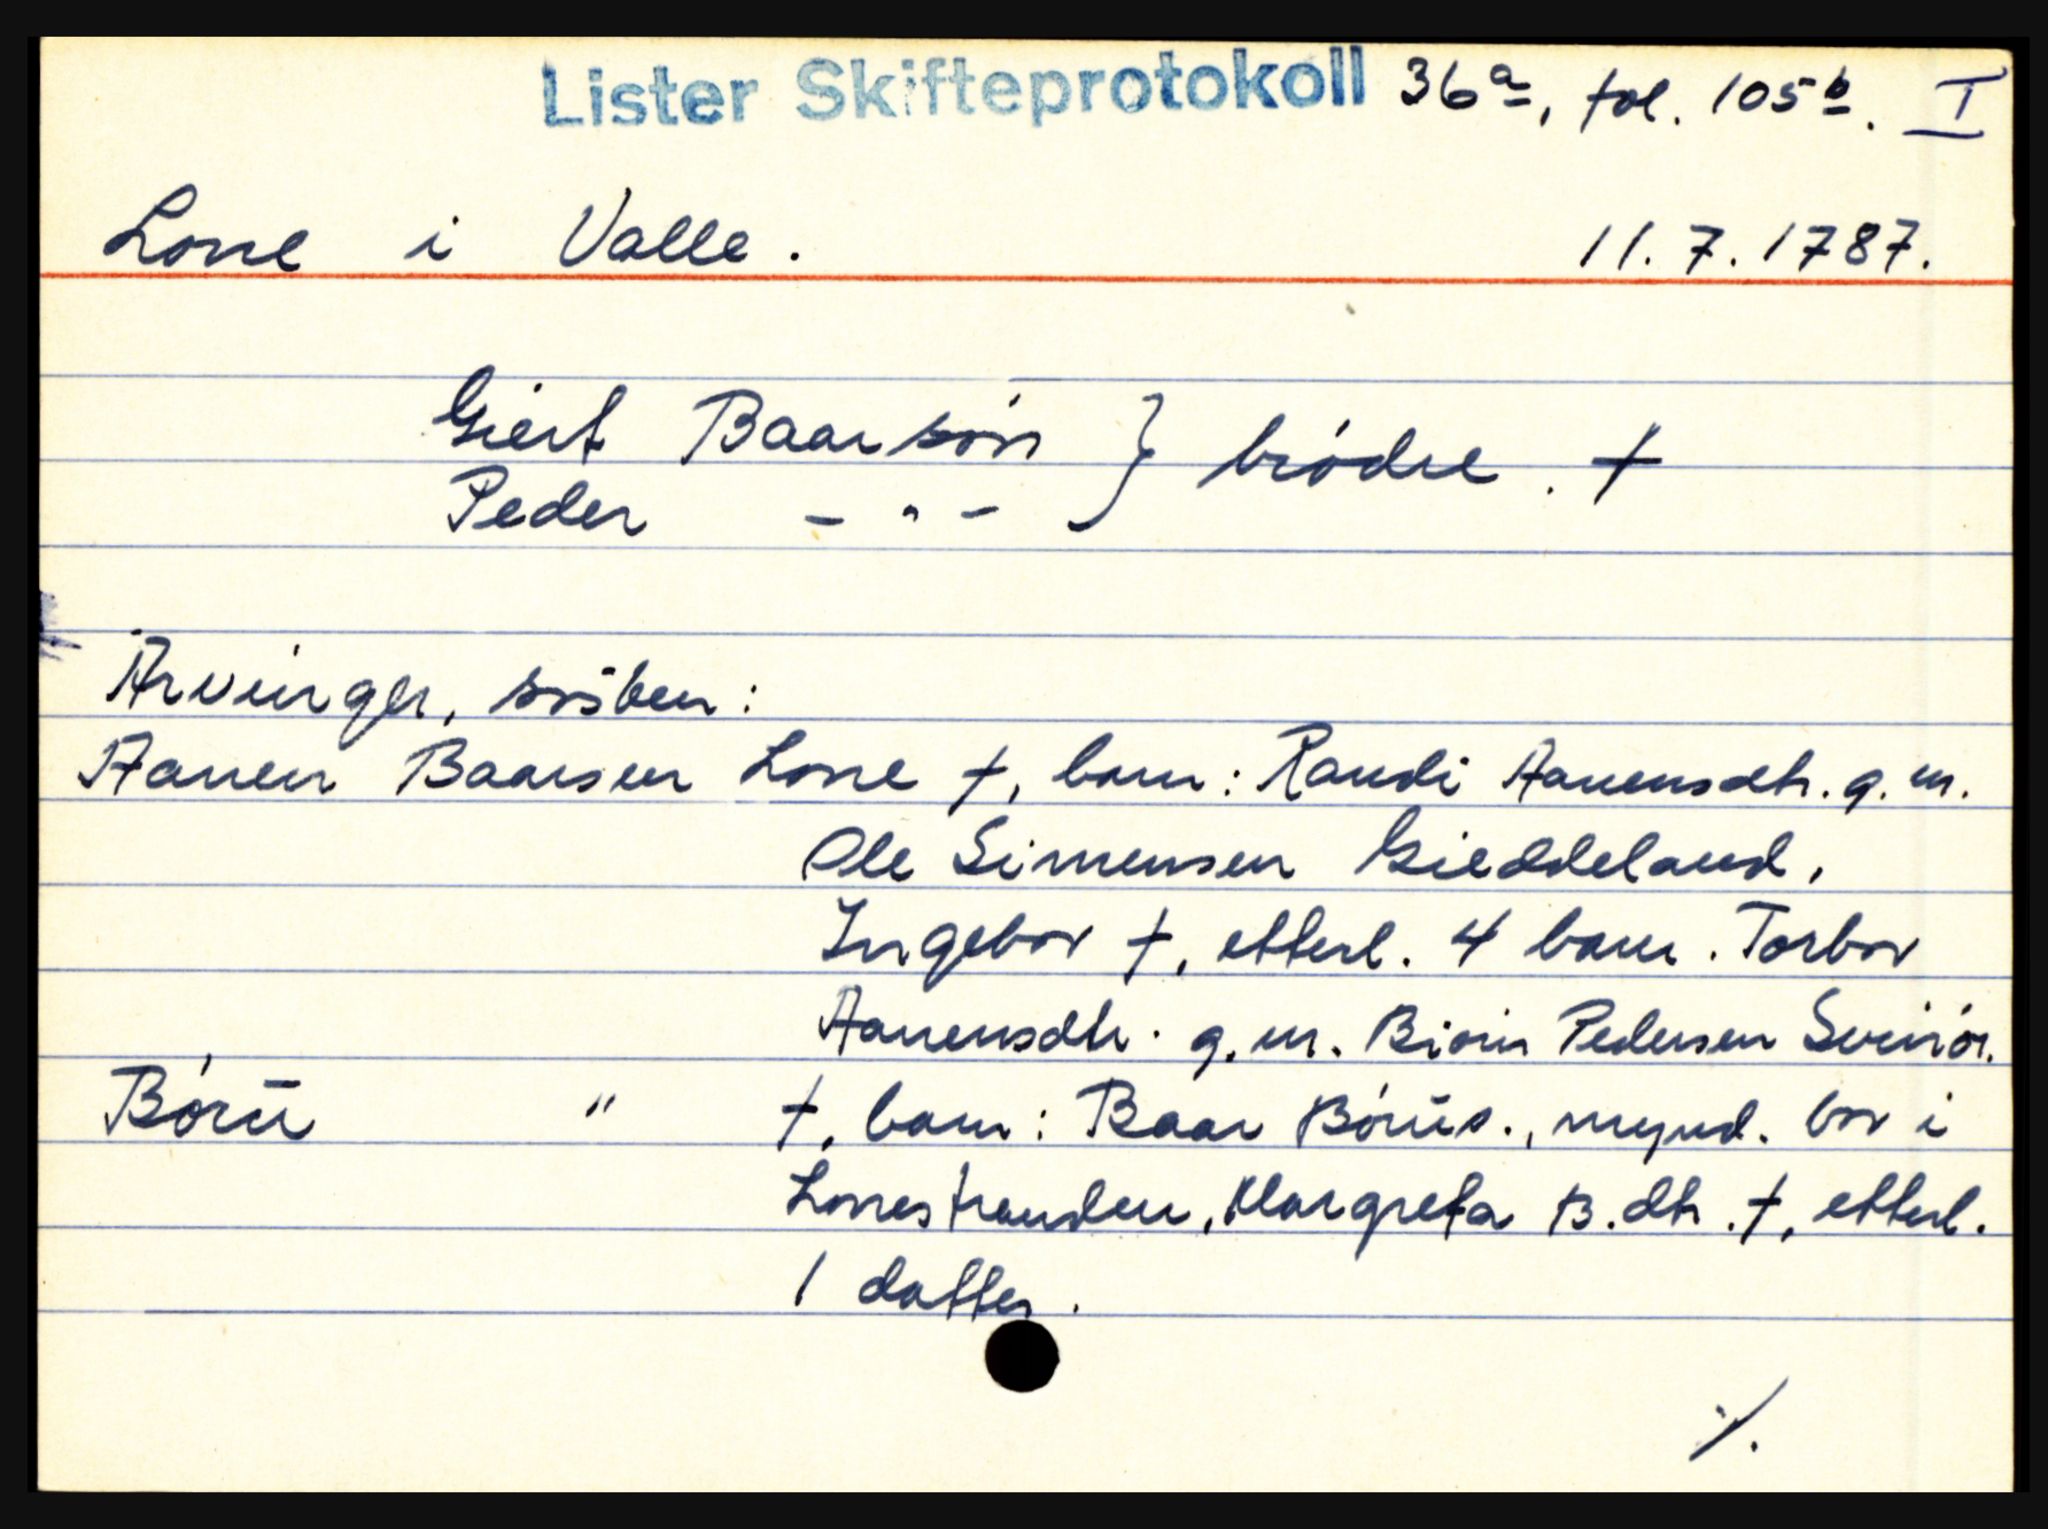 Lister Skifteprotokoll 36a, fol. 105b. I
Lone i Valle. 11.7.1787.
Giert Baarsön } brödre. †
Peder - " -
Arvinger, sösken:
Aanen Baarsen Lone †, barn: Randi Aanensdtr. g.m.
Ole Simensen Gieddeland,
Ingebor †, etterl. 4 barn. Torbor
Aanensdtr. g.m. Biörn Pedersen Svinör.
Börü " †, barn: Baar Börüs., mynd. bor i
Lonestranden, Margreta B.dtr. †, etterl.
1 datter.
./.